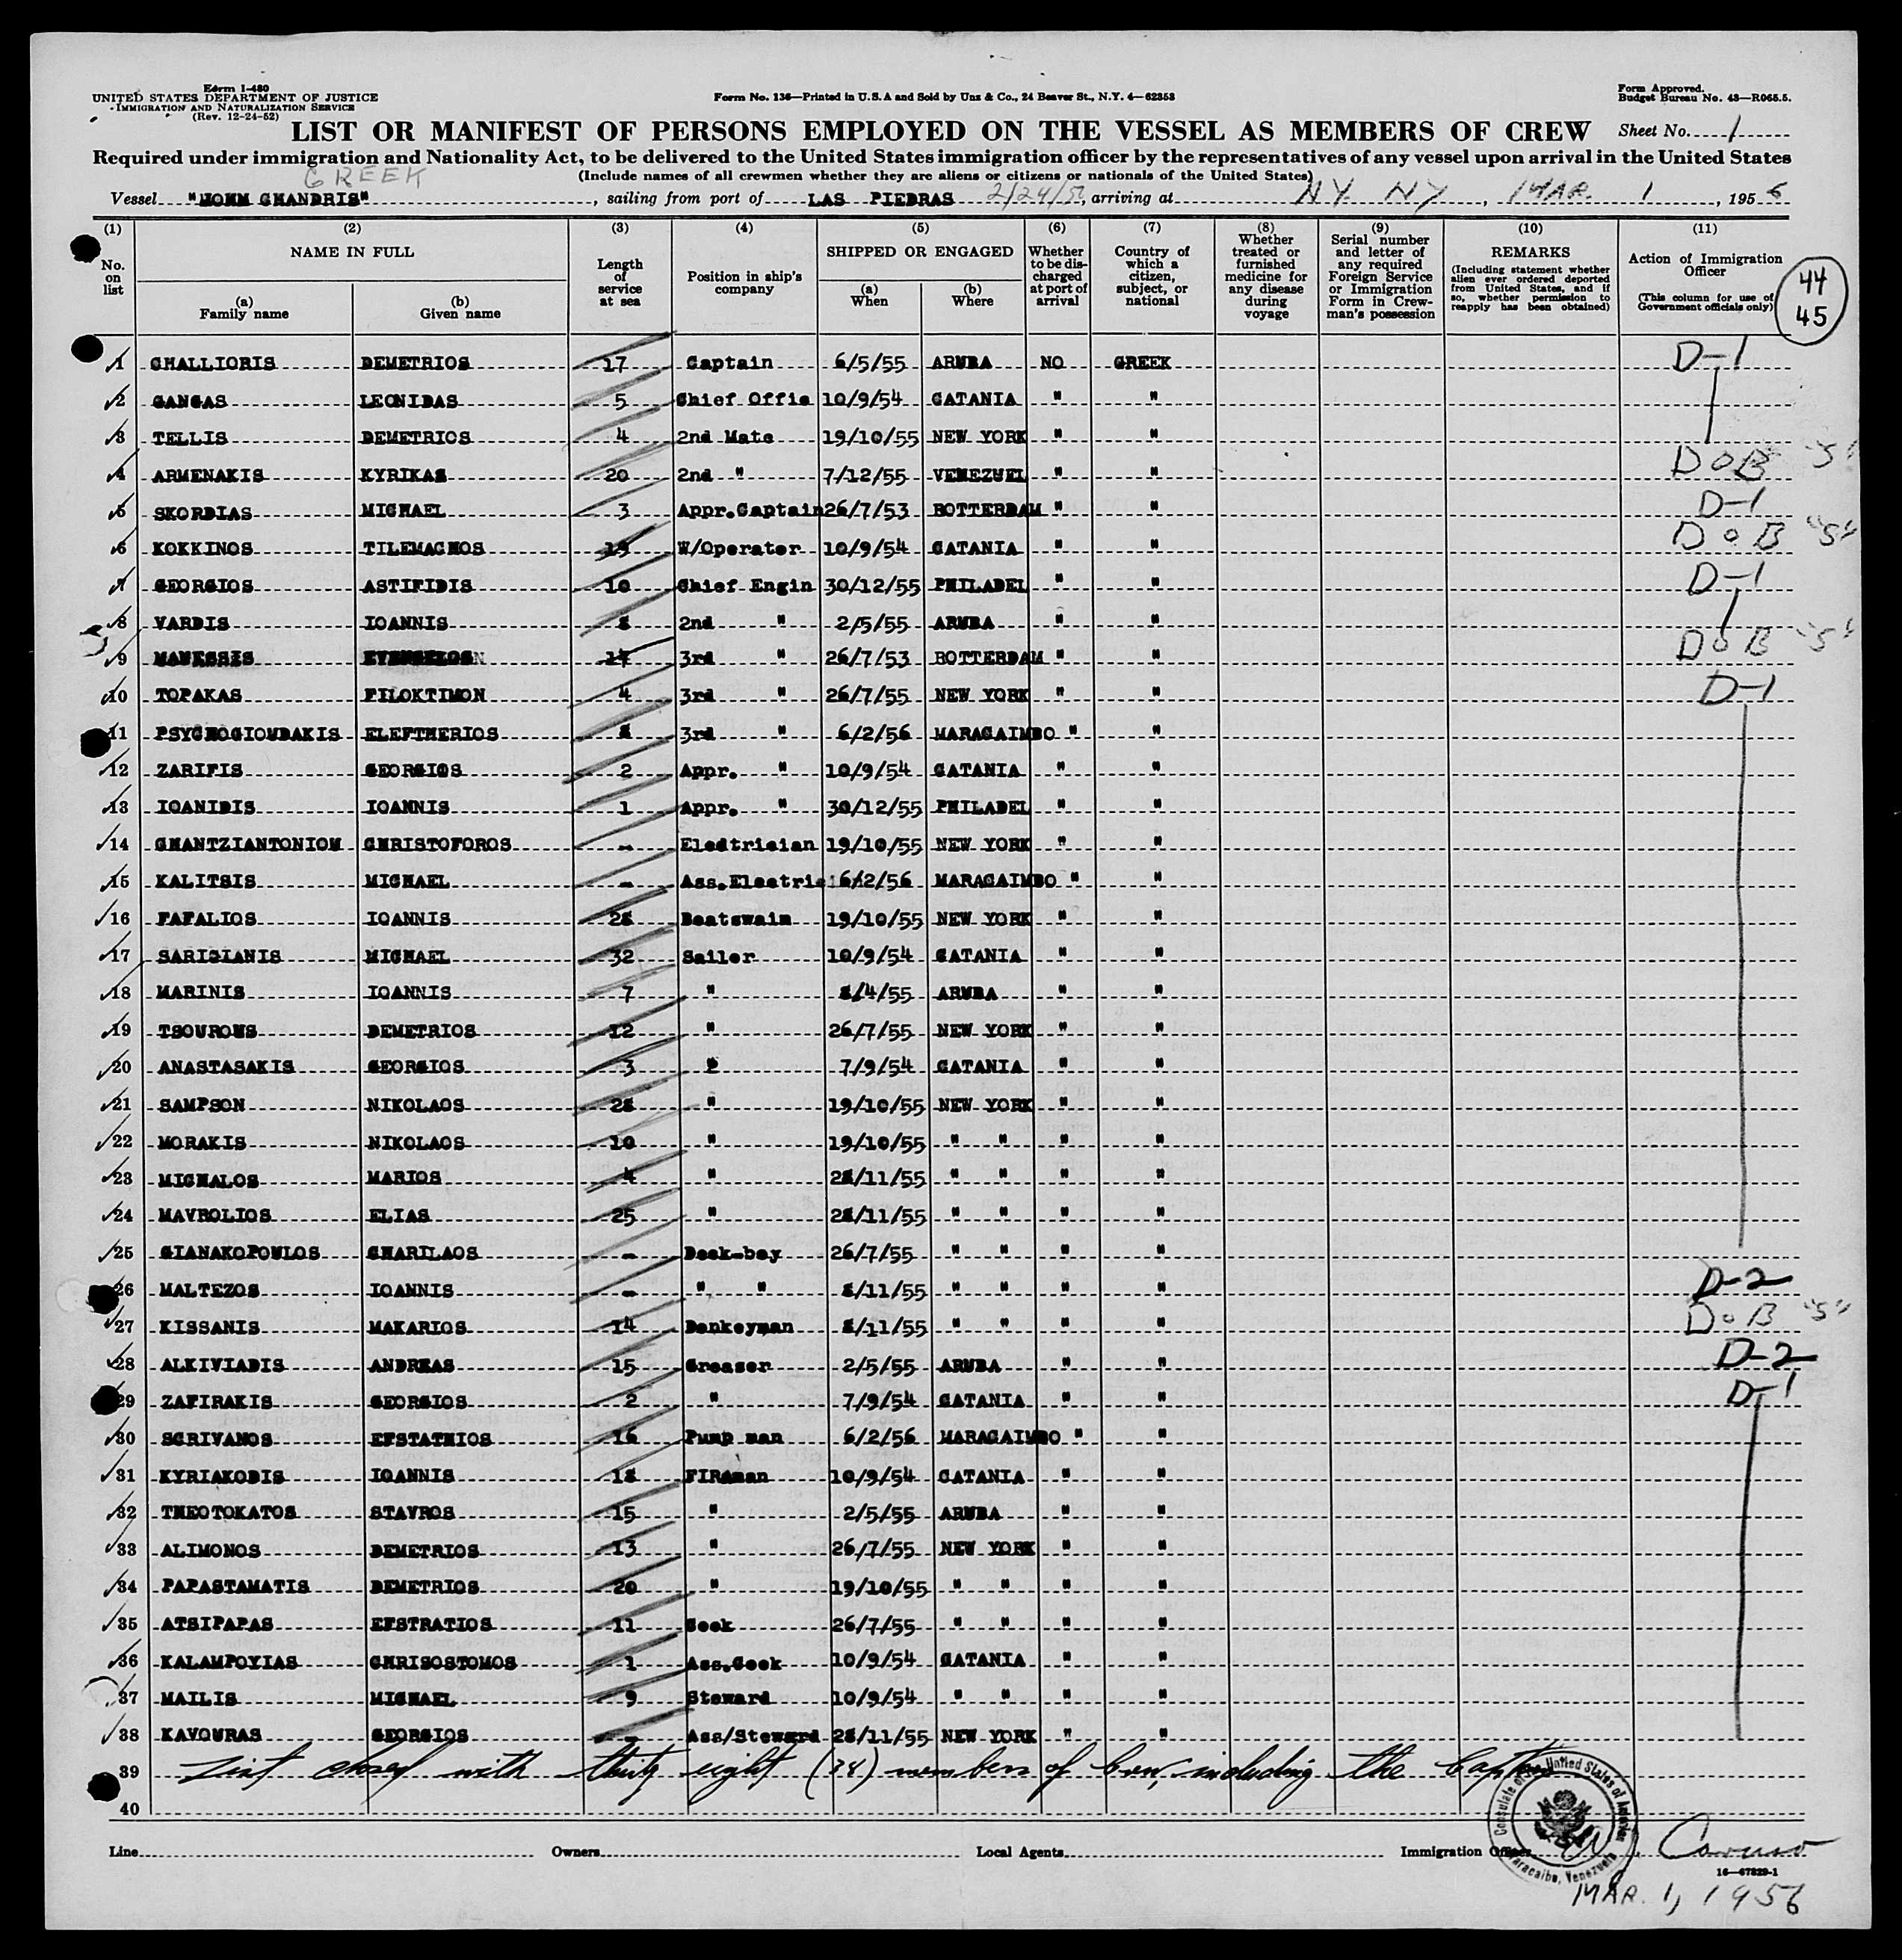 Form I-480
UNITED STATES DEPARTMENT OF JUSTICE
IMMIGRATION AND NATURALIZATION SERVICE
(Rev. 12-24-52)
Form No. 136—Printed in U.S.A and Sold by Unz & Co., 24 Beaver St., N.Y. 4—62353
Form Approved.
Budget Bureau No. 43—R065.5.
LIST OR MANIFEST OF PERSONS EMPLOYED ON THE VESSEL AS MEMBERS OF CREW Sheet No. 1
Required under immigration and Nationality Act, to be delivered to the United States immigration officer by the representatives of any vessel upon arrival in the United States
(Include names of all crewmen whether they are aliens or citizens or nationals of the United States)
GREEK
Vessel "JOHN CHANDRIS", sailing from port of LAS PIEDRAS 2/24/56, arriving at NY NY, MAR. 1, 1956
(1) No. on list
(2) NAME IN FULL (a) Family name (b) Given name
(3) Length of service at sea
(4) Position in ship's company
(5) SHIPPED OR ENGAGED (a) When (b) Where
(6) Whether to be discharged at port of arrival
(7) Country of which a citizen, subject, or national
(8) Whether treated or furnished medicine for any disease during voyage
(9) Serial number and letter of any required Foreign Service or Immigration Form in Crewman's possession
(10) REMARKS (Including statement whether alien ever ordered deported from United States, and if so, whether permission to reapply has been obtained)
(11) Action of Immigration Officer (This column for use of Government officials only)
44
45
1 CHALLIORIS DEMETRIOS 17 Captain 6/5/55 ARUBA NO GREEK D-1
2 GANGAS LEONIDAS 5 Chief Offic 10/9/54 CATANIA " "
3 TELLIS DEMETRIOS 4 2nd Mate 19/10/55 NEW YORK " "
4 ARMENAKIS KYRIKAS 20 2nd " 7/12/55 VENEZUEL " " DOB "S"
5 SKORDIAS MICHAEL 3 Appr.Captain 26/7/53 ROTTERDAM " " D-1
6 KOKKINOS TILEMACHOS 19 W/Operator 10/9/54 CATANIA " " DOB "S"
7 GEORGIOS ASTIFIDIS 10 Chief Engin 30/12/55 PHILADEL " " D-1
8 VARDIS IOANNIS 8 2nd " 2/5/55 ARUBA " "
9 3rd " 26/7/53 ROTTERDAM " " DOB "S"
10 TOPAKAS FILOKTIMON 4 3rd " 26/7/55 NEW YORK " " D-1
11 PSYCHOGIOUDAKIS ELEFTHERIOS 8 3rd " 6/2/56 MARACAIMBO " "
12 ZARIFIS GEORGIOS 2 Appr. " 10/9/54 CATANIA " "
13 IOANIDIS IOANNIS 1 Appr. " 30/12/55 PHILADEL " "
14 CHANTZIANTONIOU CHRISTOFOROS - Eledtrician 19/10/55 NEW YORK " "
15 KALITSIS MICHAEL - Ass.Electric 6/2/56 MARACAIMBO " "
16 FAFALIOS IOANNIS 28 Boatswain 19/10/55 NEW YORK " "
17 SARIDIANIS MICHAEL 32 Sailor 10/9/54 CATANIA " "
18 MARINIS IOANNIS 7 " 8/4/55 ARUBA " "
19 TSOUROUS DEMETRIOS 12 " 26/7/55 NEW YORK " "
20 ANASTASAKIS GEORGIOS 3 " 7/9/54 CATANIA " "
21 SAMPSON NIKOLAOS 28 " 19/10/55 NEW YORK " "
22 MORAKIS NIKOLAOS 10 " 19/10/55 " " " "
23 MICHALOS MARIOS 4 " 28/11/55 " " " "
24 MAVROLIOS ELIAS 25 " 28/11/55 " " " "
25 GIANAKOPOULOS CHARILAOS - Deck-boy 26/7/55 " " " "
26 MALTEZOS IOANNIS - " " 8/11/55 " " " " D-2
27 KISSANIS MAKARIOS 14 Donkeyman 8/11/55 " " " " DOB "S"
28 ALKIVIADIS ANDREAS 15 Greaser 2/5/55 ARUBA " " D-2
29 ZAFIRAKIS GEORGIOS 2 " 7/9/54 CATANIA " " D-1
30 SCRIVANOS EFSTATHIOS 16 Pump man 6/2/56 MARACAIMBO " "
31 KYRIAKODIS IOANNIS 18 FIReman 10/9/54 CATANIA " "
32 THEOTOKATOS STAVROS 15 " 2/5/55 ARUBA " "
33 ALIMONOS DEMETRIOS 13 " 26/7/55 NEW YORK " "
34 PAPASTAMATIS DEMETRIOS 20 " 19/10/55 " " " "
35 ATSIPAPAS EFSTRATIOS 11 Cook 26/7/55 " " " "
36 KALAMPOYIAS CHRISOSTOMOS 1 Ass.Cook 10/9/54 CATANIA " "
37 MAILIS MICHAEL 9 Steward 10/9/54 " " " "
38 KAVOURAS GEORGIOS - Ass/Steward 28/11/55 NEW YORK " "
39 List closed with thirty eight (38) members of Crew, including the Captain
40
Consulate of the United States of America Maracaibo, Venezuela
Line Owners Local Agents Immigration Officer Caruso
16—67829-1
MAR. 1, 1956